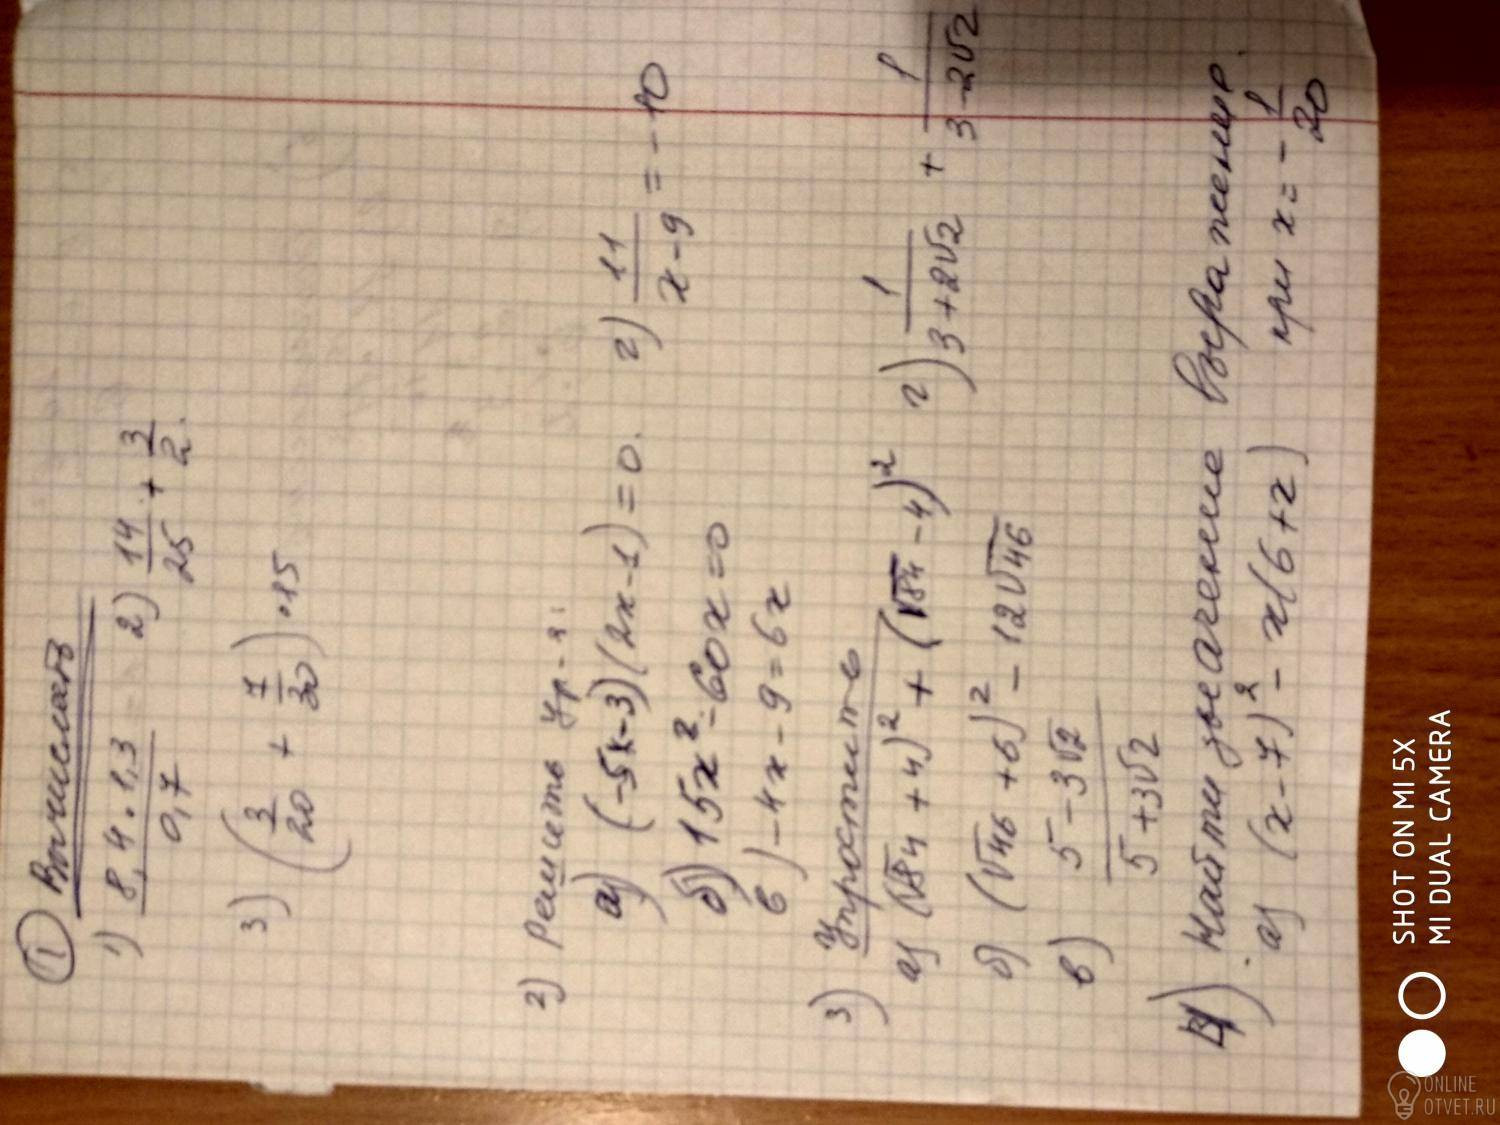 ① Вычислить
1) 8,4 · 1,3 / 0,7 2) 14/25 + 3/2.
3) (3/20 + 7/30) · 15
2) Решить Ур-я:
а) (-5x-3)(2x-1)=0. г) 11/(x-9) = -10
б) 15x²-60x=0
в) -4x-9=6x
3) Упростить
а) (√84+4)² + (√84-4)² г) 1/(3+2√2) + 1/(3-2√2)
б) (√46+6)² - 12√46
в) (5-3√2)/(5+3√2)
4) Найти значение выражения.
а) (x-7)² - x(6+x) при x = -1/20
SHOT ON MI 5X
MI DUAL CAMERA
ONLINE
OTVET.RU